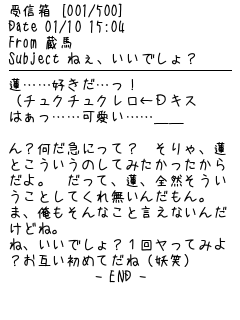 受信箱 [001/500]
Date 01/10 15:04
From 蔵馬
Subject ねぇ、いいでしょ?
蓮……好きだ…っ!
(チュクチュクレロ←Dキス
はぁっ……可愛い……___
ん?何だ急にって? そりゃ、蓮
とこういうのしてみたかったから
だよ。 だって、蓮、全然そうい
うことしてくれ無いんだもん。
ま、俺もそんなこと言えないんだ
けどね。
ね、いいでしょ?1回ヤってみよ
?お互い初めてだね(妖笑)
- END -